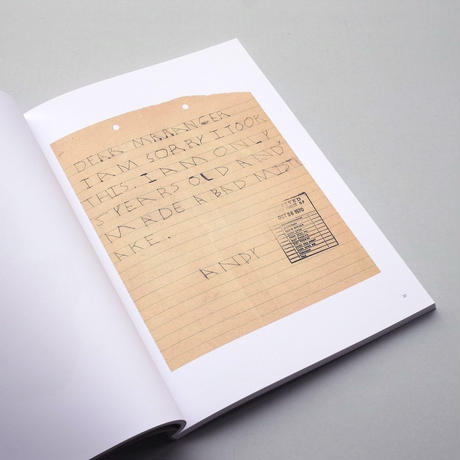 DEAR MR.RANGER
I AM SORRY I TOOK
THIS. I AM ONLY
5 YEARS OLD AND
MADE A BAD MIST
AKE.
ANDY
OCT 28 1970